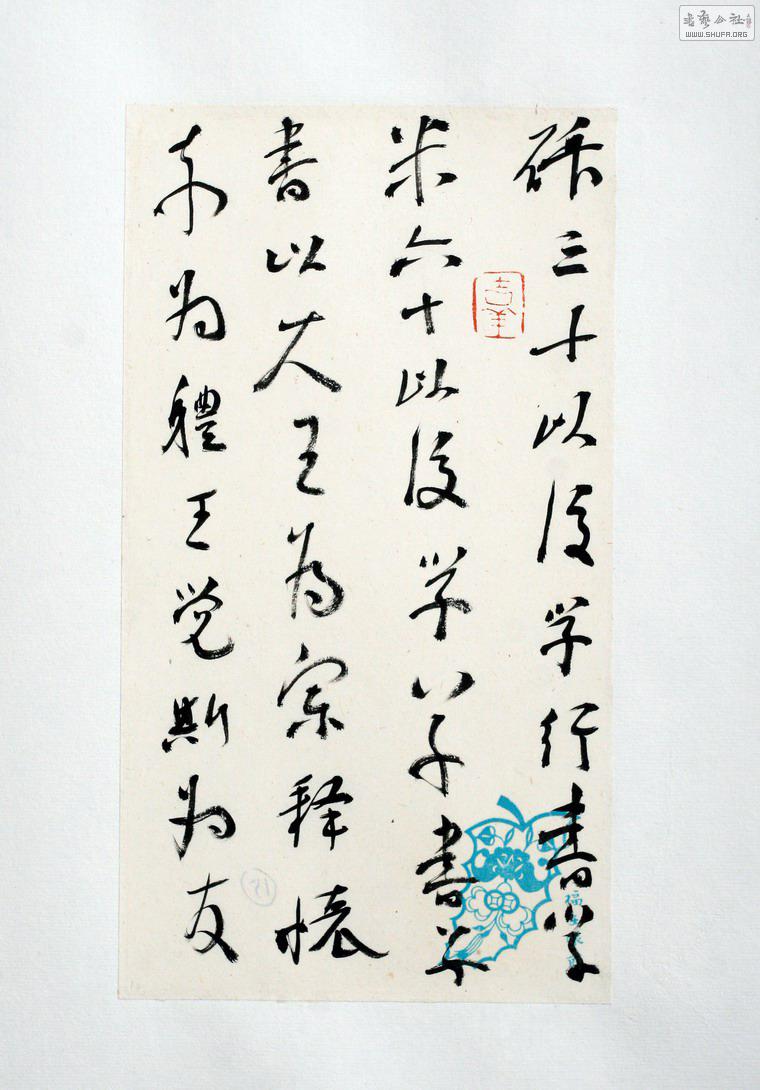 三十以後学行書学
米六十以後学草書草
書以大王為宗释懷
素为體王觉斯为友
書艺公社
WWW.SHUFA.ORG